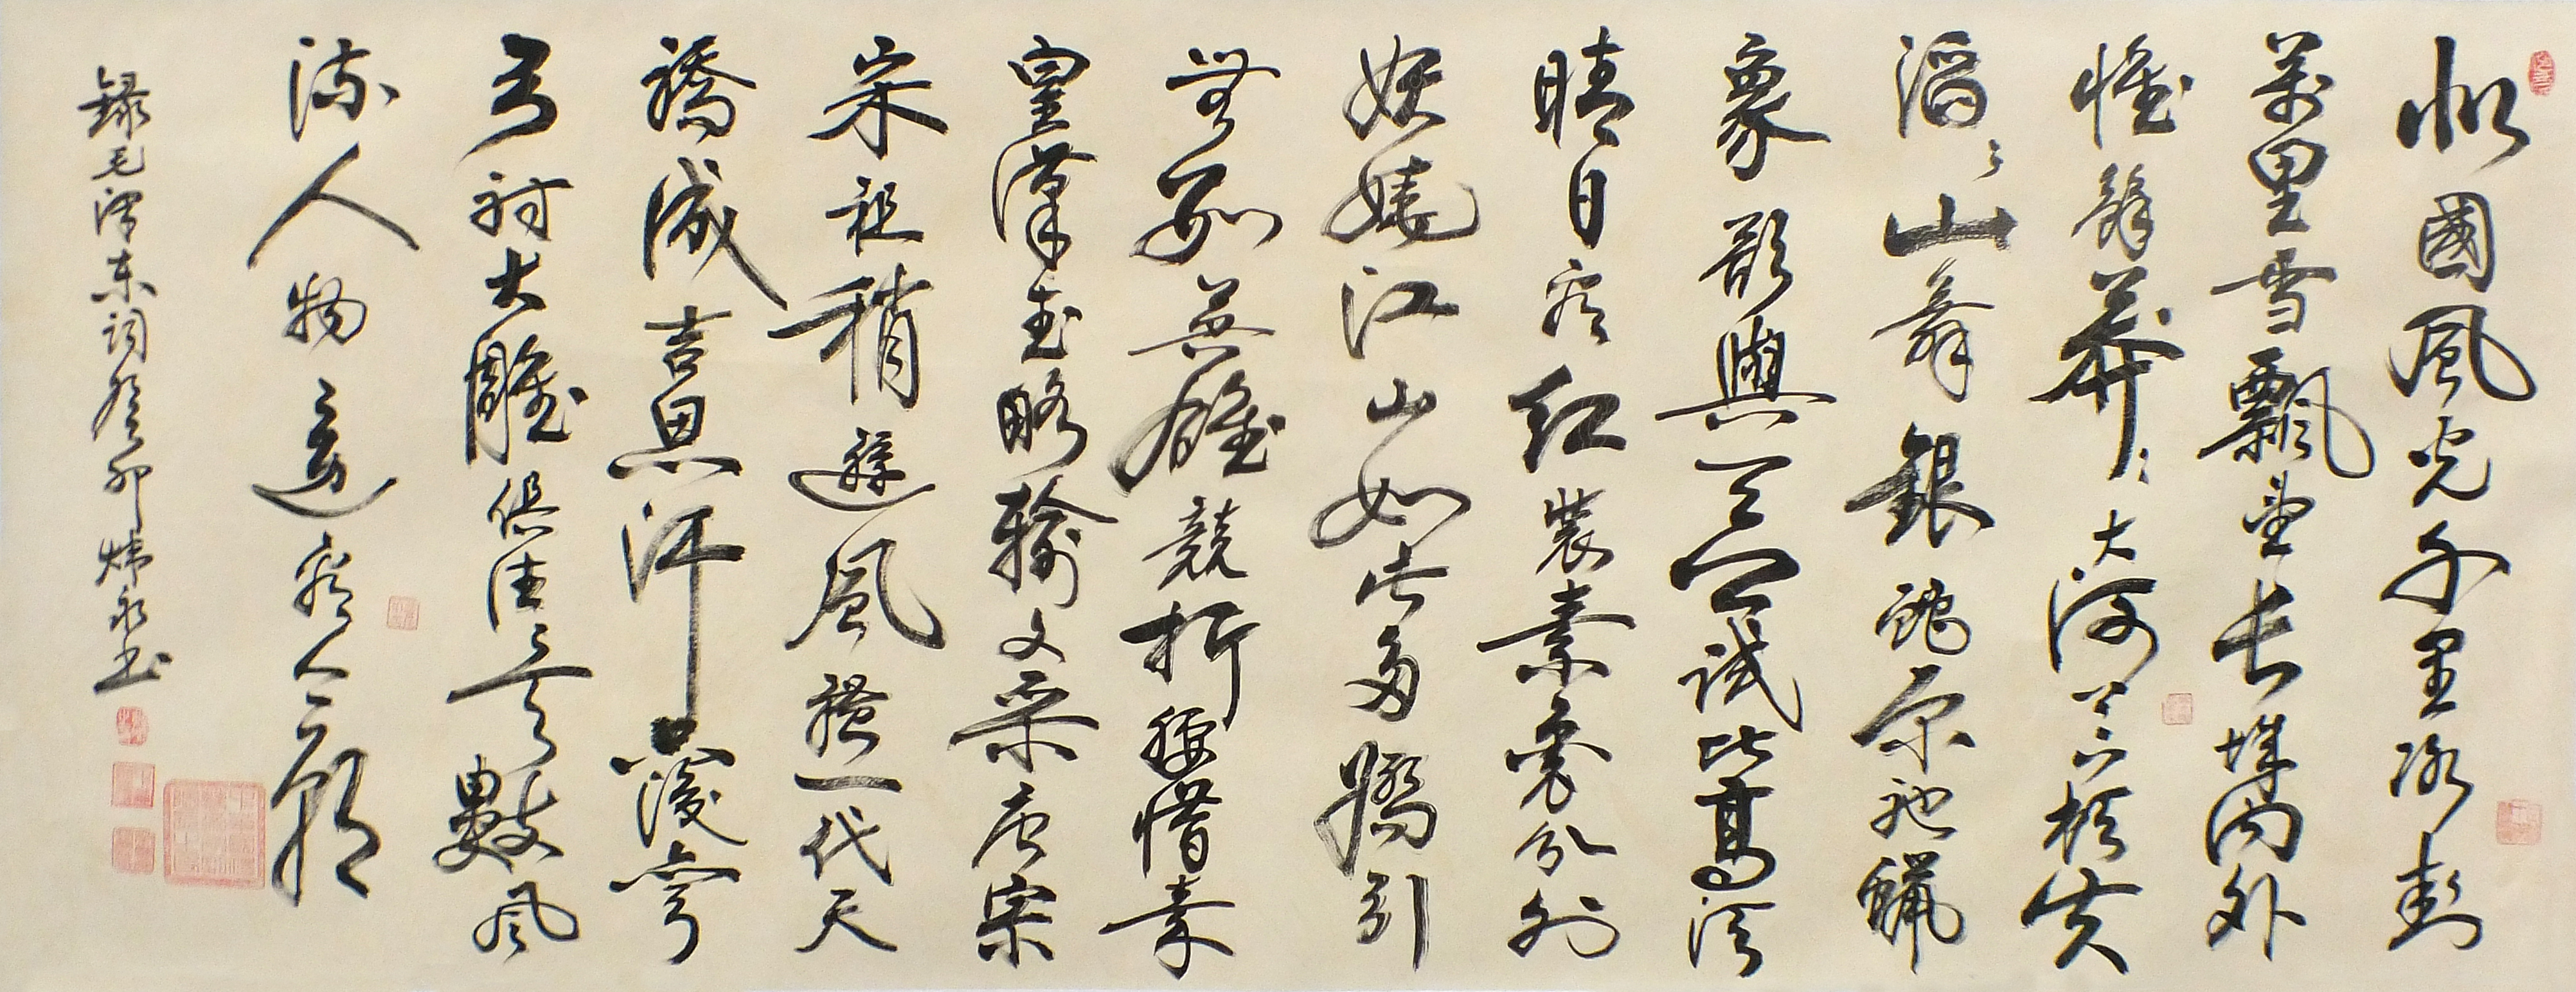 北國風光千里冰封
萬里雪飄望長城内外
惟餘莽莽大河上下頓失
滔滔山舞銀蛇原馳蠟
象欲與天公試比高須
晴日看紅裝素裹分外
妖嬈江山如此多嬌引
無數英雄競折腰惜秦
皇漢武略輸文采唐宗
宋祖稍遜風騷一代天
驕成吉思汗只識彎
弓射大雕俱往矣數風
流人物還看今朝
録毛澤東詞癸卯煒永書